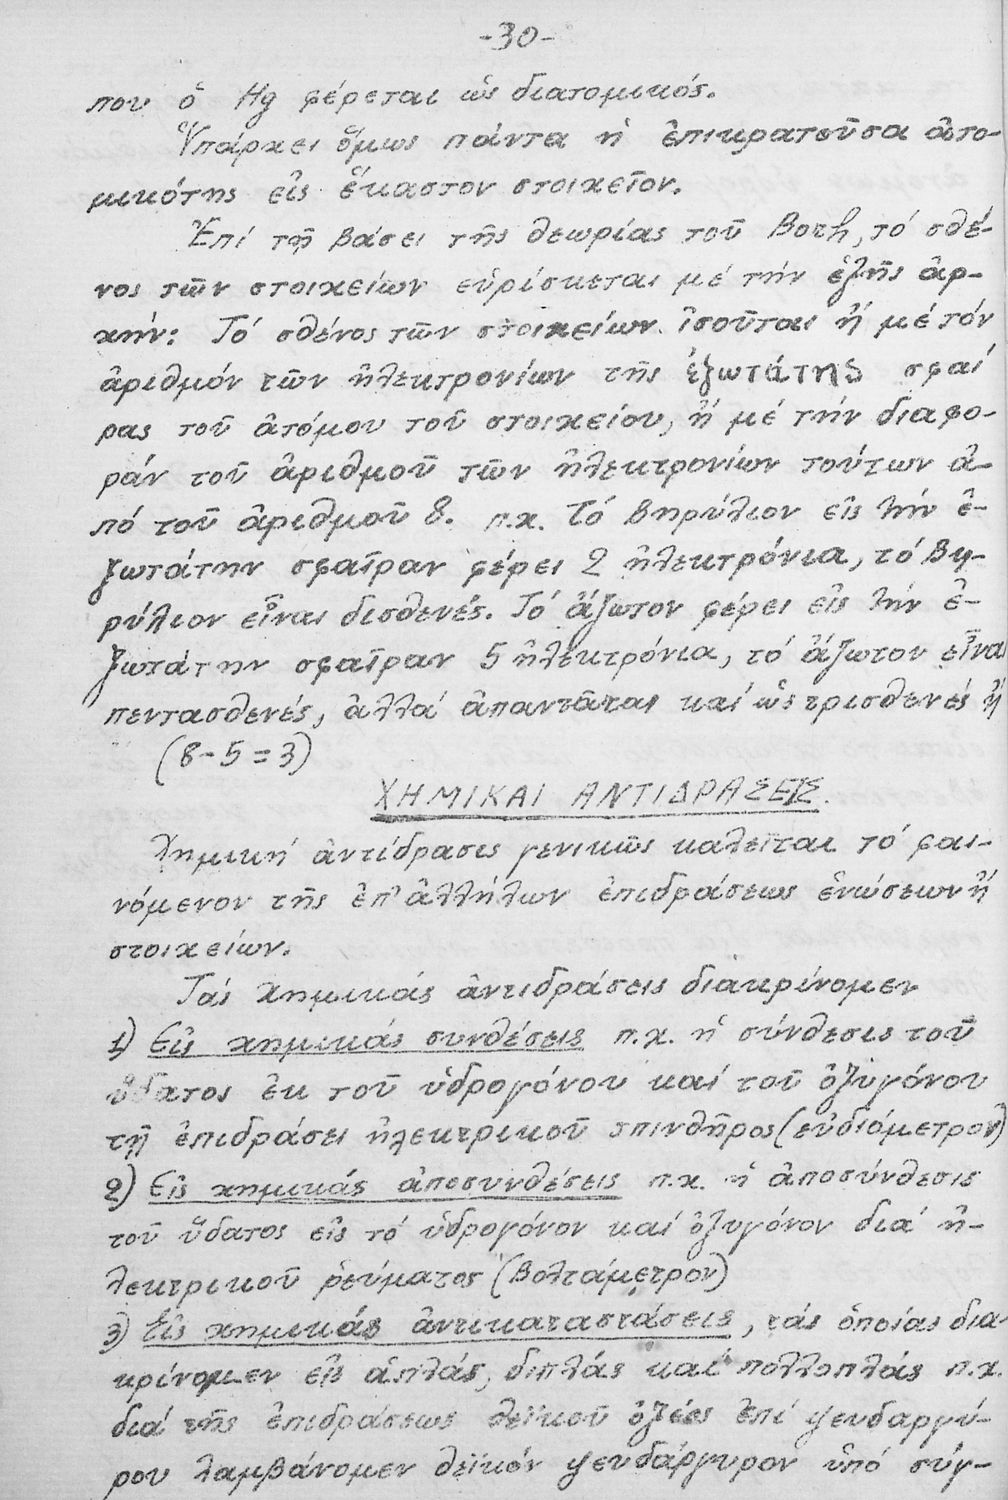 -30-
που ὁ Hg φέρεται ὡς διατομικός.
Ὑπάρχει ὅμως πάντα ἡ ἐπικρατοῦσα ἀτο-
μικότης εἰς ἕκαστον στοιχεῖον.
Ἐπί τῇ βάσει τῆς θεωρίας τοῦ Βοτh, τό σθέ-
νος τῶν στοιχείων εὑρίσκεται μέ τήν ἑξῆς ἀρ-
χήν: Τό σθένος τῶν στοιχείων ἰσοῦται ἤ μέ τόν
ἀριθμόν τῶν ἠλεκτρονίων τῆς ἐξωτάτης σφαί
ρας τοῦ ἀτόμου τοῦ στοιχείου, ἤ μέ τήν διαφο-
ράν τοῦ ἀριθμοῦ τῶν ἠλεκτρονίων τούτων ἀ-
πό τοῦ ἀριθμοῦ 8. π.χ. Τό Βηρύλιον εἰς τήν ἐ-
ξωτάτην σφαῖραν φέρει 2 ἠλεκτρόνια, τό Βη-
ρύλιον εἶναι δισθενές. Τό ἄζωτον φέρει εἰς τήν ἐ-
ξωτάτην σφαῖραν 5 ἠλεκτρόνια, τό ἄζωτον εἶναι
πεντασθενές, ἀλλά ἀπαντᾶται καί ὡς τρισθενές ἤ
(8-5=3)
ΧΗΜΙΚΑΙ ΑΝΤΙΔΡΑΣΕΙΣ.
Χημική ἀντίδρασις γενικῶς καλεῖται τό φαι-
νόμενον τῆς ἐπ' ἀλλήλων ἐπιδράσεως ἑνώσεων ἤ
στοιχείων.
Τάς χημικάς ἀντιδράσεις διακρίνομεν
1) Εἰς χημικάς συνθέσεις π.χ. ἡ σύνθεσις τοῦ
ὕδατος ἐκ τοῦ ὑδρογόνου καί τοῦ ὀξυγόνου
τῇ ἐπιδράσει ἠλεκτρικοῦ σπινθῆρος (εὐδιόμετρον)
2) Εἰς χημικάς ἀποσυνθέσεις π.χ. ἡ ἀποσύνθεσις
τοῦ ὕδατος εἰς τό ὑδρογόνον καί ὀξυγόνον διά ἠ-
λεκτρικοῦ ρεύματος (Βολτάμετρον)
3) Εἰς χημικάς ἀντικαταστάσεις, τάς ὁποίας δια-
κρίνομεν εἰς ἁπλάς, διπλάς καί πολλοπλάς π.χ.
διά τῆς ἐπιδράσεως θειϊκοῦ ὀξέος ἐπί ψευδαργύ-
ρου λαμβάνομεν θεϊκόν ψευδάργυρον ὑπό σύγ-